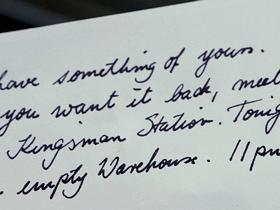 have something of yours.
you want it back, meet
Kingsman Station.
empty Warehouse. 11